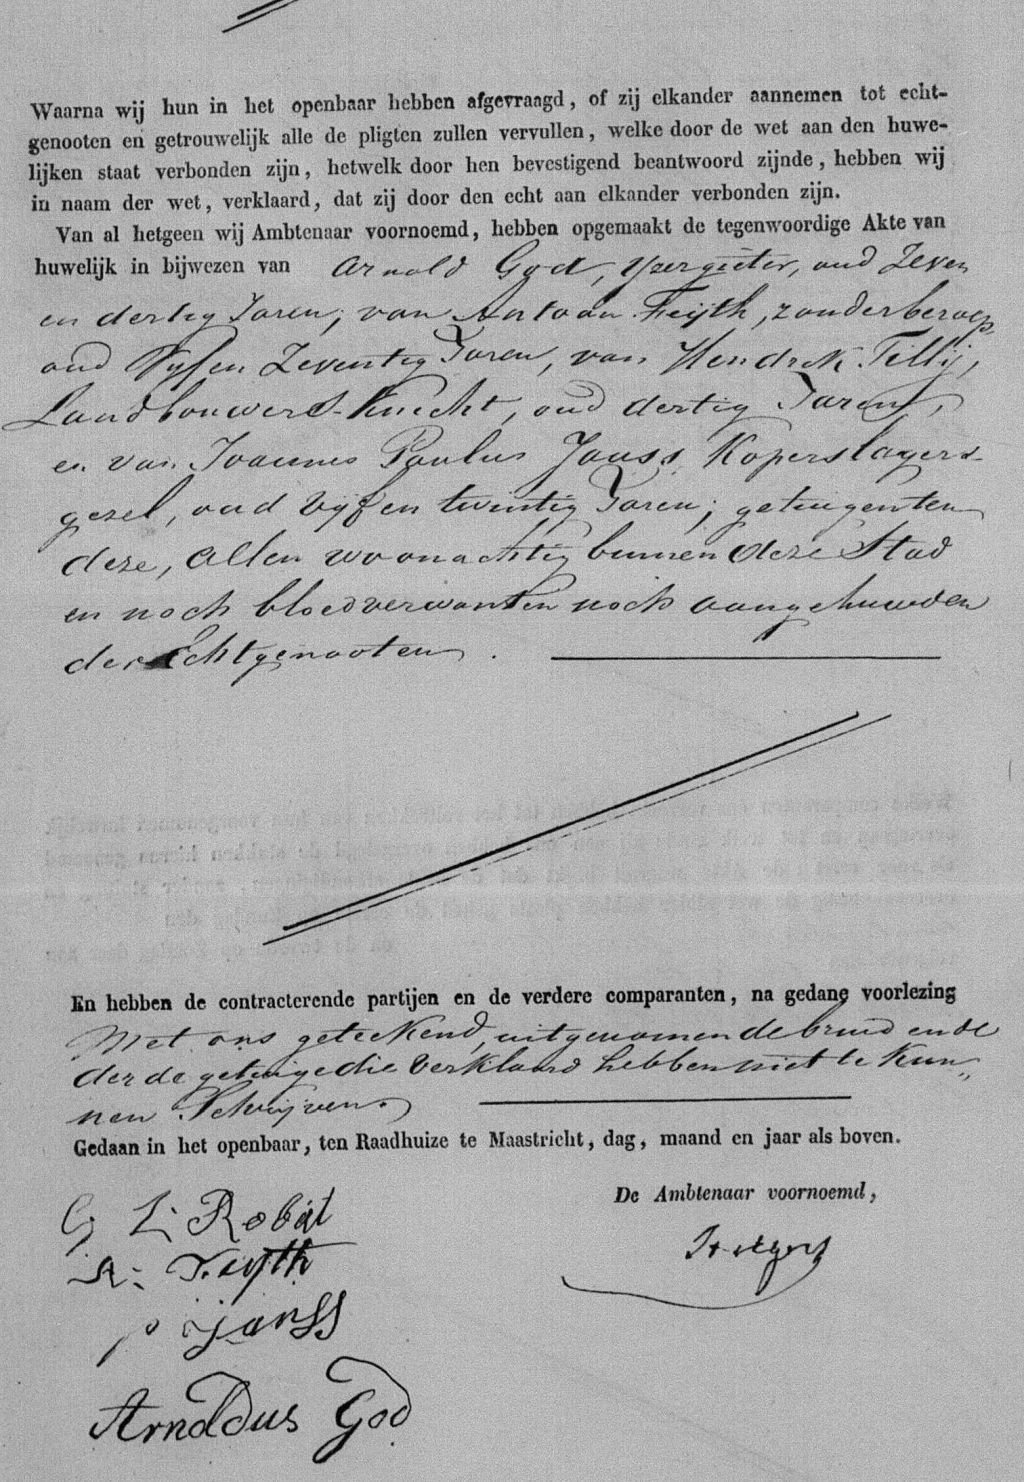 Waarna wij hun in het openbaar hebben afgevraagd, of zij elkander aannemen tot echt-
genooten en getrouwelijk alle de pligten zullen vervullen, welke door de wet aan den huwe-
lijken staat verbonden zijn, hetwelk door hen bevestigend beantwoord zijnde, hebben wij
in naam der wet, verklaard, dat zij door den echt aan elkander verbonden zijn.
Van al hetgeen wij Ambtenaar voornoemd, hebben opgemaakt de tegenwoordige Akte van
huwelijk in bijwezen van Arnold God, Yzergieter, oud Zeven
en dertig Jaren, van Antoon Feijth, zonder beroep,
oud Vyf en Zeventig Jaren, van Hendrik Tillij,
Landbouwers-Knecht, oud dertig Jaren,
en van Joannes Paulus Janss, Koperslagers-
gezel, oud Vyf en twintig Jaren; getuigen ten
deze, allen woonachtig binnen deze Stad
en noch bloedverwanten noch aangehuwden
der Echtgenooten.
En hebben de contracterende partijen en de verdere comparanten, na gedane voorlezing
Met ons geteekend, uitgenomen de bruid en de
derde getuige die Verklaard hebben niet te Kun„
nen Schrijven.
Gedaan in het openbaar, ten Raadhuize te Maastricht, dag, maand en jaar als boven.
De Ambtenaar voornoemd,
G L Robat
A. Feyth
p janss
Arnoldus God